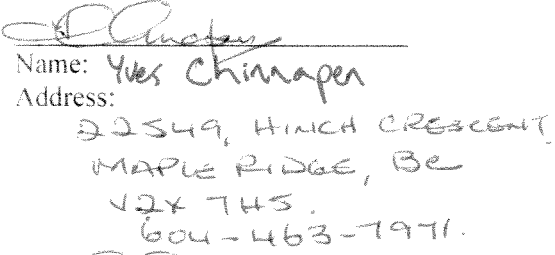 Name: Yves Chinnapen
Address:
22549, HINCH CRESCENT,
MAPLE RIDGE, BC
V2X 7H5.
604-463-7971.